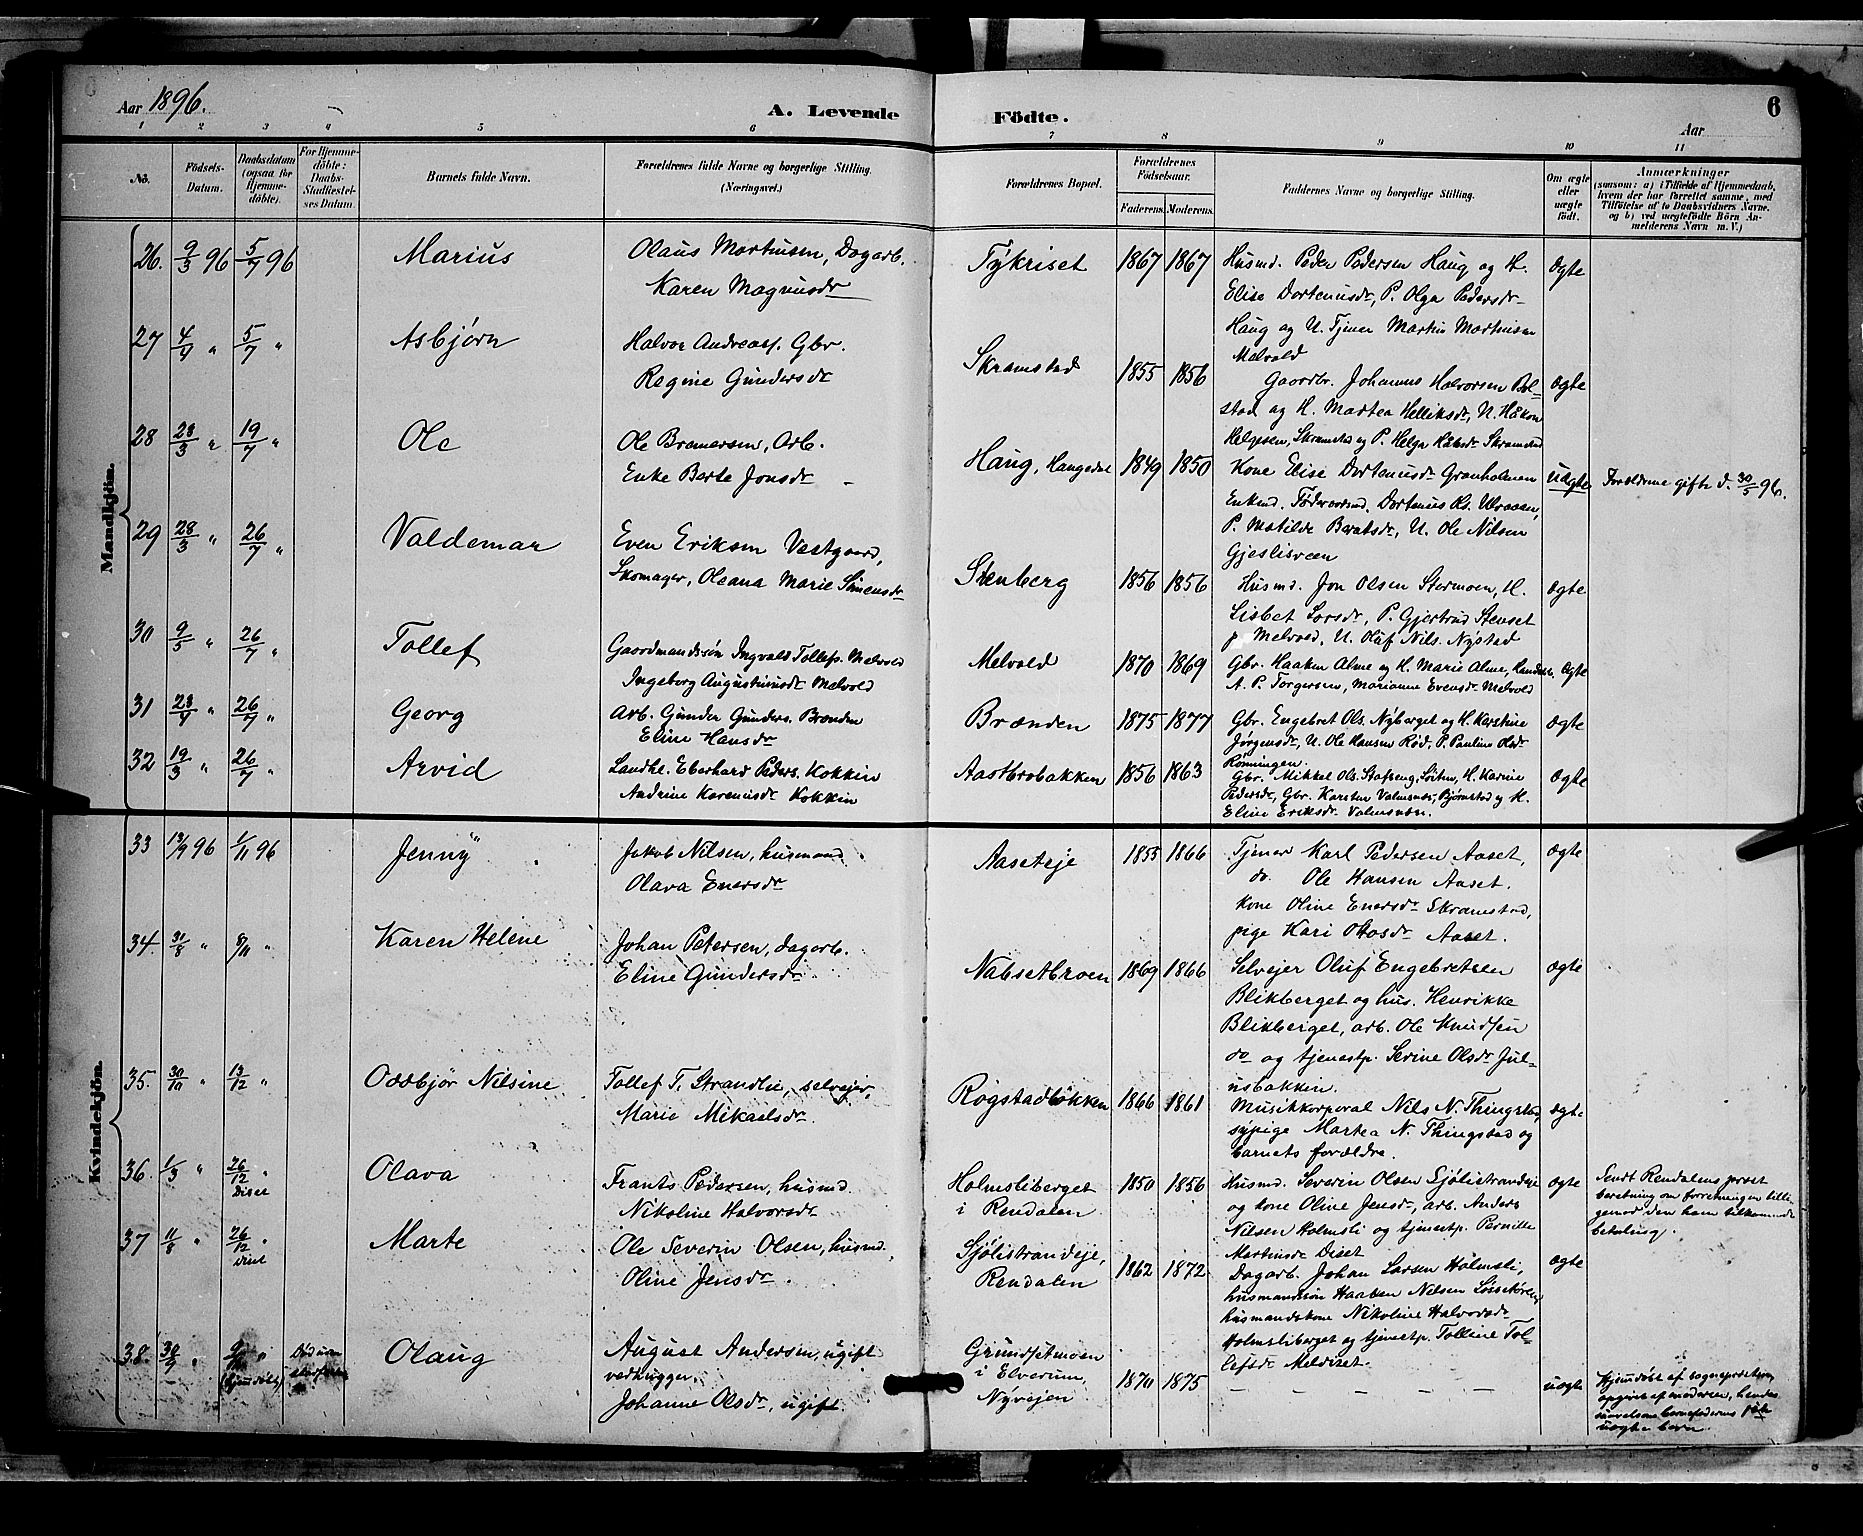 Aar 1896.
A. Levende Födte.
6
Aar
1 2 3 4 5 6 7 8 9 10 11
No.
Födsels-
Datum.
Daabsdatum
(ogsaa for
Hjemme-
döbte).
For Hjemme-
döbte:
Daabs-
Stadfæstel-
ses Datum.
Barnets fulde Navn.
Forældrenes fulde Navne og borgerlige Stilling.
(Næringsvei.)
Forældrenes Bopæl.
Forældrenes
Födselsaar.
Faderens. Moderens.
Faddernes Navne og borgerlige Stilling.
Om ægte
eller
uægte
födt.
Anmærkninger
(saasom: a) i Tilfælde af Hjemmedaab,
hvem der har forrettet samme, med
Tilföielse af to Daabsvidners Navne,
og b) ved uægtefödte Börn An-
melderens Navn m. V.)
Mandkjön.
26. 9/3 96 5/7 96 Marius
Olaus Martinsen, Dagarb.
Karen Magnusdr
Tykriset 1867 1867
Husmd. Peder Pedersen Haug og H.
Elise Dortenusdr, P. Olga Pedersdr
Haug og U. Tjener Martin Martinsen
Melvold
Ægte
27 4/4 " 5/7 " Asbjørn
Halvor Andreas. Gbr.
Regine Gundersdr
Skramstad 1855 1856
Gaardbr. Johannes Halvorsen Bol-
stad og H. Martea Helliksdr, U. Håkon
Helgesen, Skramstad og P. Helga Skramstad
Ægte
28 28/3 " 19/7 " Ole
Ole Bramersen, Arb.
Enke Berte Jonsdr
Haug, Haugedal 1849 1850
Kone Elise Dortenusdr Granholmen
Enkemd. Föderaadsmd. Dortenus
P. Matilde Berntsdr, U. Ole Nilsen
Gjeslisveen
uægte
Forældrene gifte d. 30/5 96.
29 28/3 " 26/7 " Valdemar
Even Eriksen Vestgaard,
Skomager, Oleana Marie Simensdr
Stenberg 1856 1856
Husmd. Jon Olsen Stormoen, H.
Lisbet Larsdr, P. Gjertrud Stenset
p Melvold, U. Oluf Nils. Nystad
Ægte
30 9/5 " 26/7 " Tollef
Gaardmandssön Ingvald Tollefs. Melvold
Ingeborg Augustinusdr Melvold
Melvold 1870 1869
Gbr. Haaken Alme og H. Marie Alme,
A. P. Torgersen, Marianne Evensdr Melvold
Ægte
31 23/4 " 26/7 " Georg
Arb. Gunder Gunders. Brænden
Eline Hansdr
Brænden 1875 1877
Gbr. Engebret Ols. Nyberget og H. Karstine
Jørgensdr, U. Ole Hansen Rød, P. Pauline Olsdr
Rönningen.
Ægte
32 19/3 " 26/7 " Arvid
Landhl. Eberhard Peders. Kokkin
Andrine Karenusdr Kokkin
Aastbrobakken 1856 1863
Gbr. Mikkel Ols. Stafseng, H. Karine
Pedersdr, Gbr. Karsten Valmsnæs, Bjørnstad og H.
Eline Eriksdr Valmsnæs.
Ægte
Kvindekjön.
33 13/9 96 1/11 96 Jenny
Jakob Nilsen, husmand
Olava Enersdr
Aaseteje 1855 1866
Tjener Karl Pedersen Aaset,
do. Ole Hansen Aaset.
kone Oline Enersdr Skramstad,
pige Kari Olsdr Aaset.
Ægte
34. 31/8 " 8/11 " Karen Helene
Johan Petersen, dagarb.
Eline Gundersdr
Nabsetbroen 1869 1866
Selvejer Oluf Engebretsen
Blikberget og hus. Henrikke
Blikberget, arb. Ole Knudsen
do og tjenestp. Serine Olsdr Jul-
usbakkin.
Ægte
35. 30/10 " 13/12 " Oddbjör Nilsine
Tollef T. Strandlie, selvejer,
Marie Mikaelsdr.
Rogstadløkken 1866 1861
Musikkorporal Nils N. Thingstad,
sypige Martea N. Thingstad og
barnets forældre.
Ægte
36 1/3 " 26/12 " Diset Olava
Frants Pedersen, husmd.
Nikoline Halvorsdr
Holmsliberget
i Rendalen 1850 1856
Husmd. Severin Olsen Sjølistrandeje
og kone Oline Jensdr, arb. Anders
Nilsen Holmsli og tjenestp. Pernille
Martinsdr Diset
Ægte
Sendt Rendalens præst
beretning om forretningen tilli-
gemed den ham tilkommende
betaling.
37 11/8 " 26/12 " Diset Marte
Ole Severin Olsen, husmd.
Oline Jensdr
Sjølistrandeje,
Rendalen 1862 1872
Dagarb. Johan Larsen Holmsli,
husmandssön Haaken Nilsen
husmandskone Nikoline Halvorsdr
Holmsliberget og tjenestp. Tolline Tol-
lefsdr Meldiset.
Ægte
38. 30/9 " (hjemdöbt) Olaug
August Andersen, ugift
vedhugger,
Johanne Olsdr, ugift.
Grundsetmoen
i Elverum,
Nyvejen 1870 1875
— — — — —
uægte
Hjemdöbt af sogneprästen,
opgivet af moderen, hendes
saavelsom barnefaderens
uægte barn.